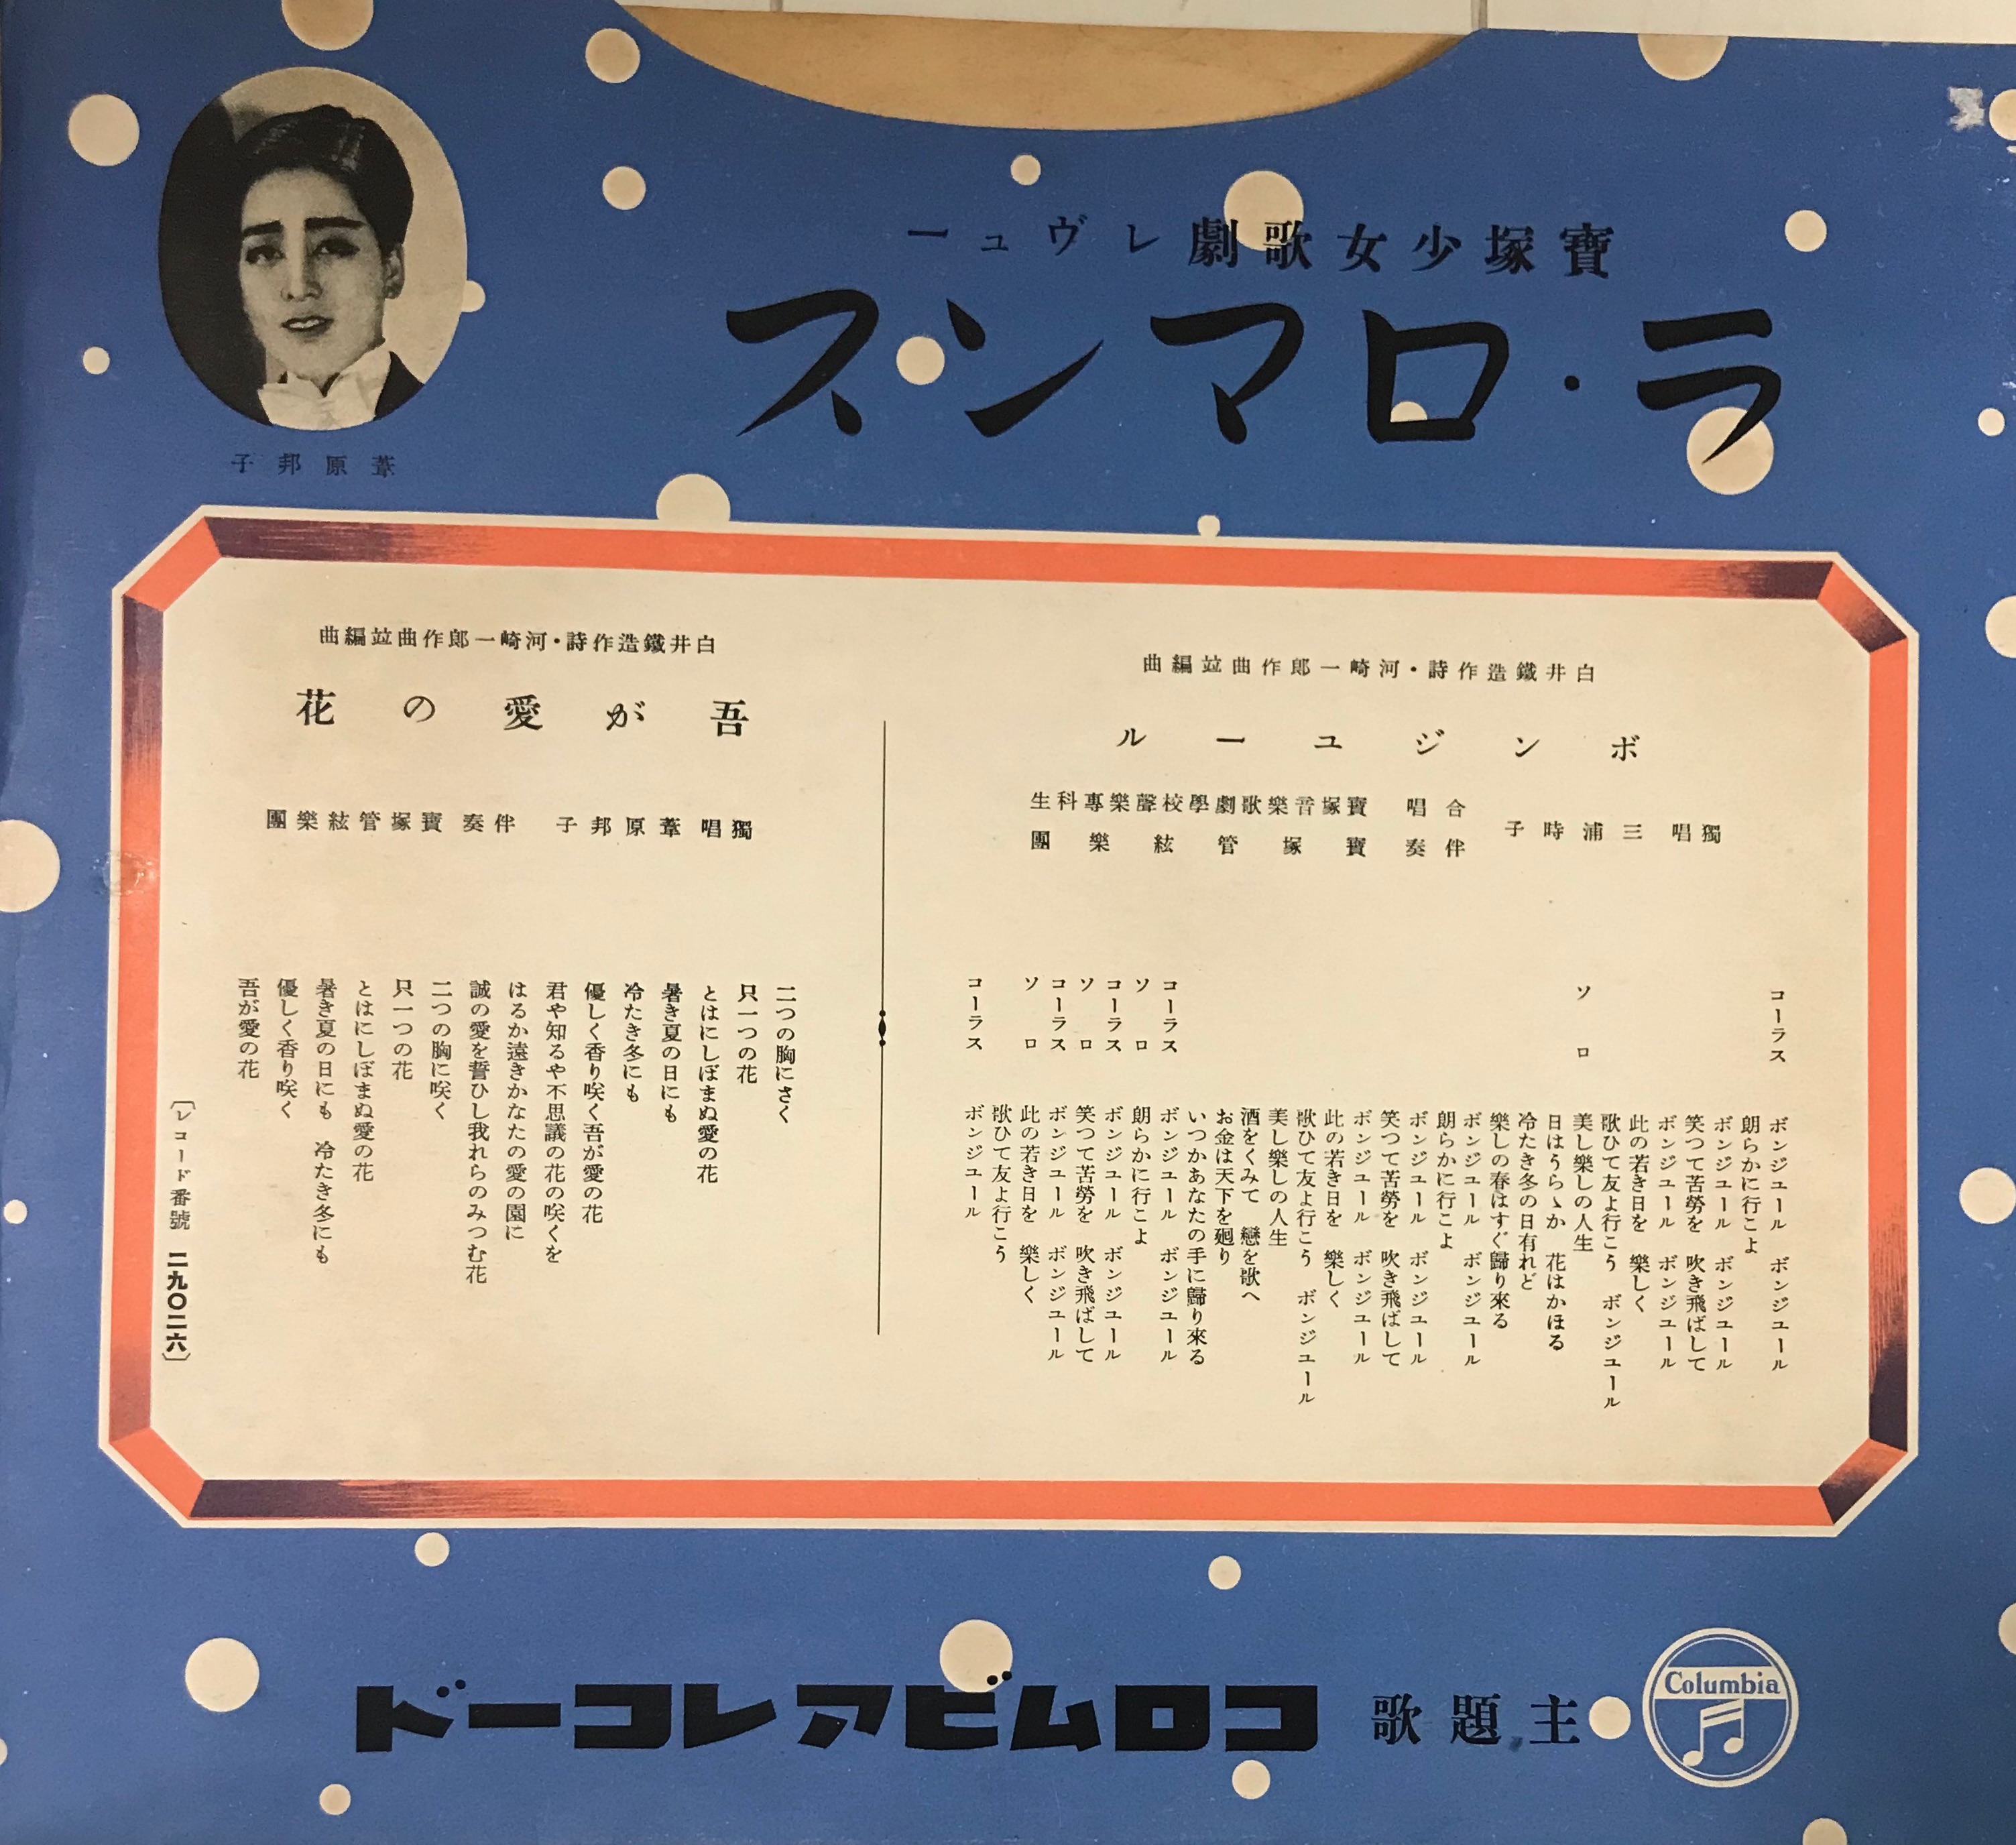 寶塚少女歌劇レヴュー
ラ・ロマンス
葦原邦子
白井鐵造作詩・河崎一郎作曲竝編曲
ボンジユール
獨唱 三浦時子
合唱 寶塚音樂歌劇學校聲樂專科生
伴奏 寶塚管絃樂團
コーラス ボンジユール ボンジユール
朗らかに行こよ
ボンジユール ボンジユール
笑つて苦勞を 吹き飛ばして
ボンジユール ボンジユール
此の若き日を 樂しく
歌ひて友よ行こう ボンジユール
ソロ 美し樂しの人生
日はうらゝか 花はかほる
冷たき冬の日有れど
樂しの春はすぐ歸り來る
ボンジユール ボンジユール
朗らかに行こよ
ボンジユール ボンジユール
笑つて苦勞を 吹き飛ばして
ボンジユール ボンジユール
此の若き日を 樂しく
歌ひて友よ行こう ボンジユール
美し樂しの人生
酒をくみて 戀を歌へ
お金は天下を廻り
いつかあなたの手に歸り來る
コーラス ボンジユール ボンジユール
ソロ 朗らかに行こよ
コーラス ボンジユール ボンジユール
ソロ 笑つて苦勞を 吹き飛ばして
コーラス ボンジユール ボンジユール
ソロ 此の若き日を 樂しく
歌ひて友よ行こう
コーラス ボンジユール
白井鐵造作詩・河崎一郎作曲竝編曲
吾が愛の花
獨唱 葦原邦子 伴奏 寶塚管絃樂團
二つの胸にさく
只一つの花
とはにしぼまぬ愛の花
暑き夏の日にも
冷たき冬にも
優しく香り咲く吾が愛の花
君や知るや不思議の花の咲くを
はるか遠きかなたの愛の園に
誠の愛を誓ひし我れらのみつむ花
二つの胸に咲く
只一つの花
とはにしぼまぬ愛の花
暑き夏の日にも 冷たき冬にも
優しく香り咲く
吾が愛の花
〔レコード番號 二九〇二六〕
Columbia
主題歌
コロムビアレコード